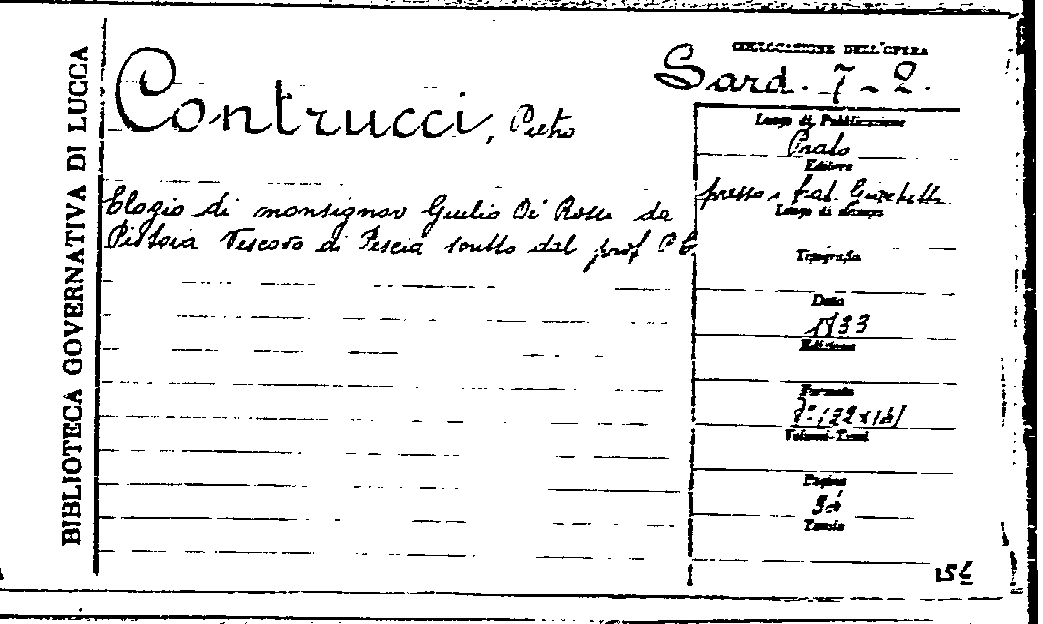 BIBLIOTECA GOVERNATIVA DI LUCCA
COLLOCAZIONE DELL'OPERA
Sard. 7-2.
Contrucci, Pietro
Elogio di monsignor Giulio De' Rossi da
Pistoia Vescovo di Pescia scritto dal prof P C
Luogo di Pubblicazione
Prato
Editore
presso i frat. Giachetti
Luogo di stampa
Tipografia
Data
1833
Edizione
Formato
Volumi-Tomi
Pagine
Tavole